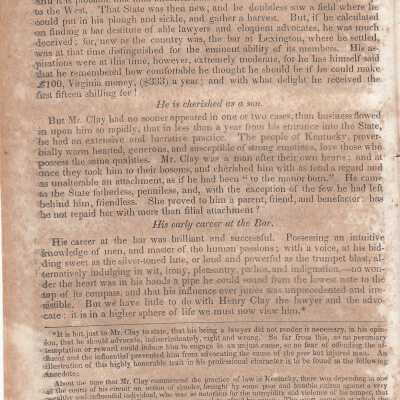 to the West. That State was then new, and he doubtless saw a field where he
could put in his plough and sickle, and gather a harvest. But, if he calculated
on finding a bar destitute of able lawyers and eloquent advocates, he was much
deceived; for, now or the country, was the bar at Lexington, where he settled,
was at that time distinguished for the eminent ability of its members. His as-
pirations were at this time, however, extremely moderate, for he has himself said
that he remembered how comfortable he thought he should be if he could make
£100, Virginia money, ($333) a year; and with what delight he received the
first fifteen shilling fee!
He is cherished as a son.
But Mr. Clay had no sooner appeared in one or two cases, than business flowed
in upon him so rapidly, that in less than a year from his entrance into the State,
he had an extensive and lucrative practice. The people of Kentucky, prover-
bially warm hearted, generous, and susceptible of strong emotions, love those who
possess the same qualities. Mr. Clay was a man after their own hearts; and at
once they took him to their bosoms, and cherished him with as fond a regard and
as unalterable an attachment, as if he had been "to the manor born." He came
to the State fatherless, penniless, and, with the exception of the few he had left
behind him, friendless. She proved to him a parent, friend, and benefactor: has
he not repaid her with more than filial attachment?
His early career at the Bar.
His career at the bar was brilliant and successful. Possessing an intuitive
knowledge of men, and master of the human passions; with a voice, at his bid-
ding sweet as the silver-toned lute, or loud and powerful as the trumpet blast, al-
ternatively indulging in wit, irony, pleasantry, pathos, and indignation,—no won-
der the heart was in his hands a pipe he could sound from the lowest note to the
top of its compass, and that his influence over juries was unprecedented and irre-
sistible. But we have little to do with Henry Clay the lawyer and the advo-
cate: it is in a higher sphere of life we must now view him.*
*It is but just to Mr. Clay to state, that his being a lawyer did not render it necessary, in his opin-
ion, that he should advocate, indiscriminately, right and wrong. So far from this, as no pecuniary
temptation or reward could induce him to engage in an unjust cause, so no fear of offending the af-
fluent and the influential prevented him from advocating the cause of the poor but injured man. An
illustration of this highly honorable trait in his professional character is to be found in the following
Anecdote:
About the time that Mr. Clay commenced the practice of law in Kentucky, there was depending in one
of the courts of his circuit an action of slander, brought by some poor and humble citizen against a very
wealthy and influential individual, who was as notorious for the